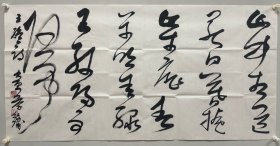 山中相送
罷日暮掩
柴扉春
草明年綠
王孫歸不
歸
王維詩